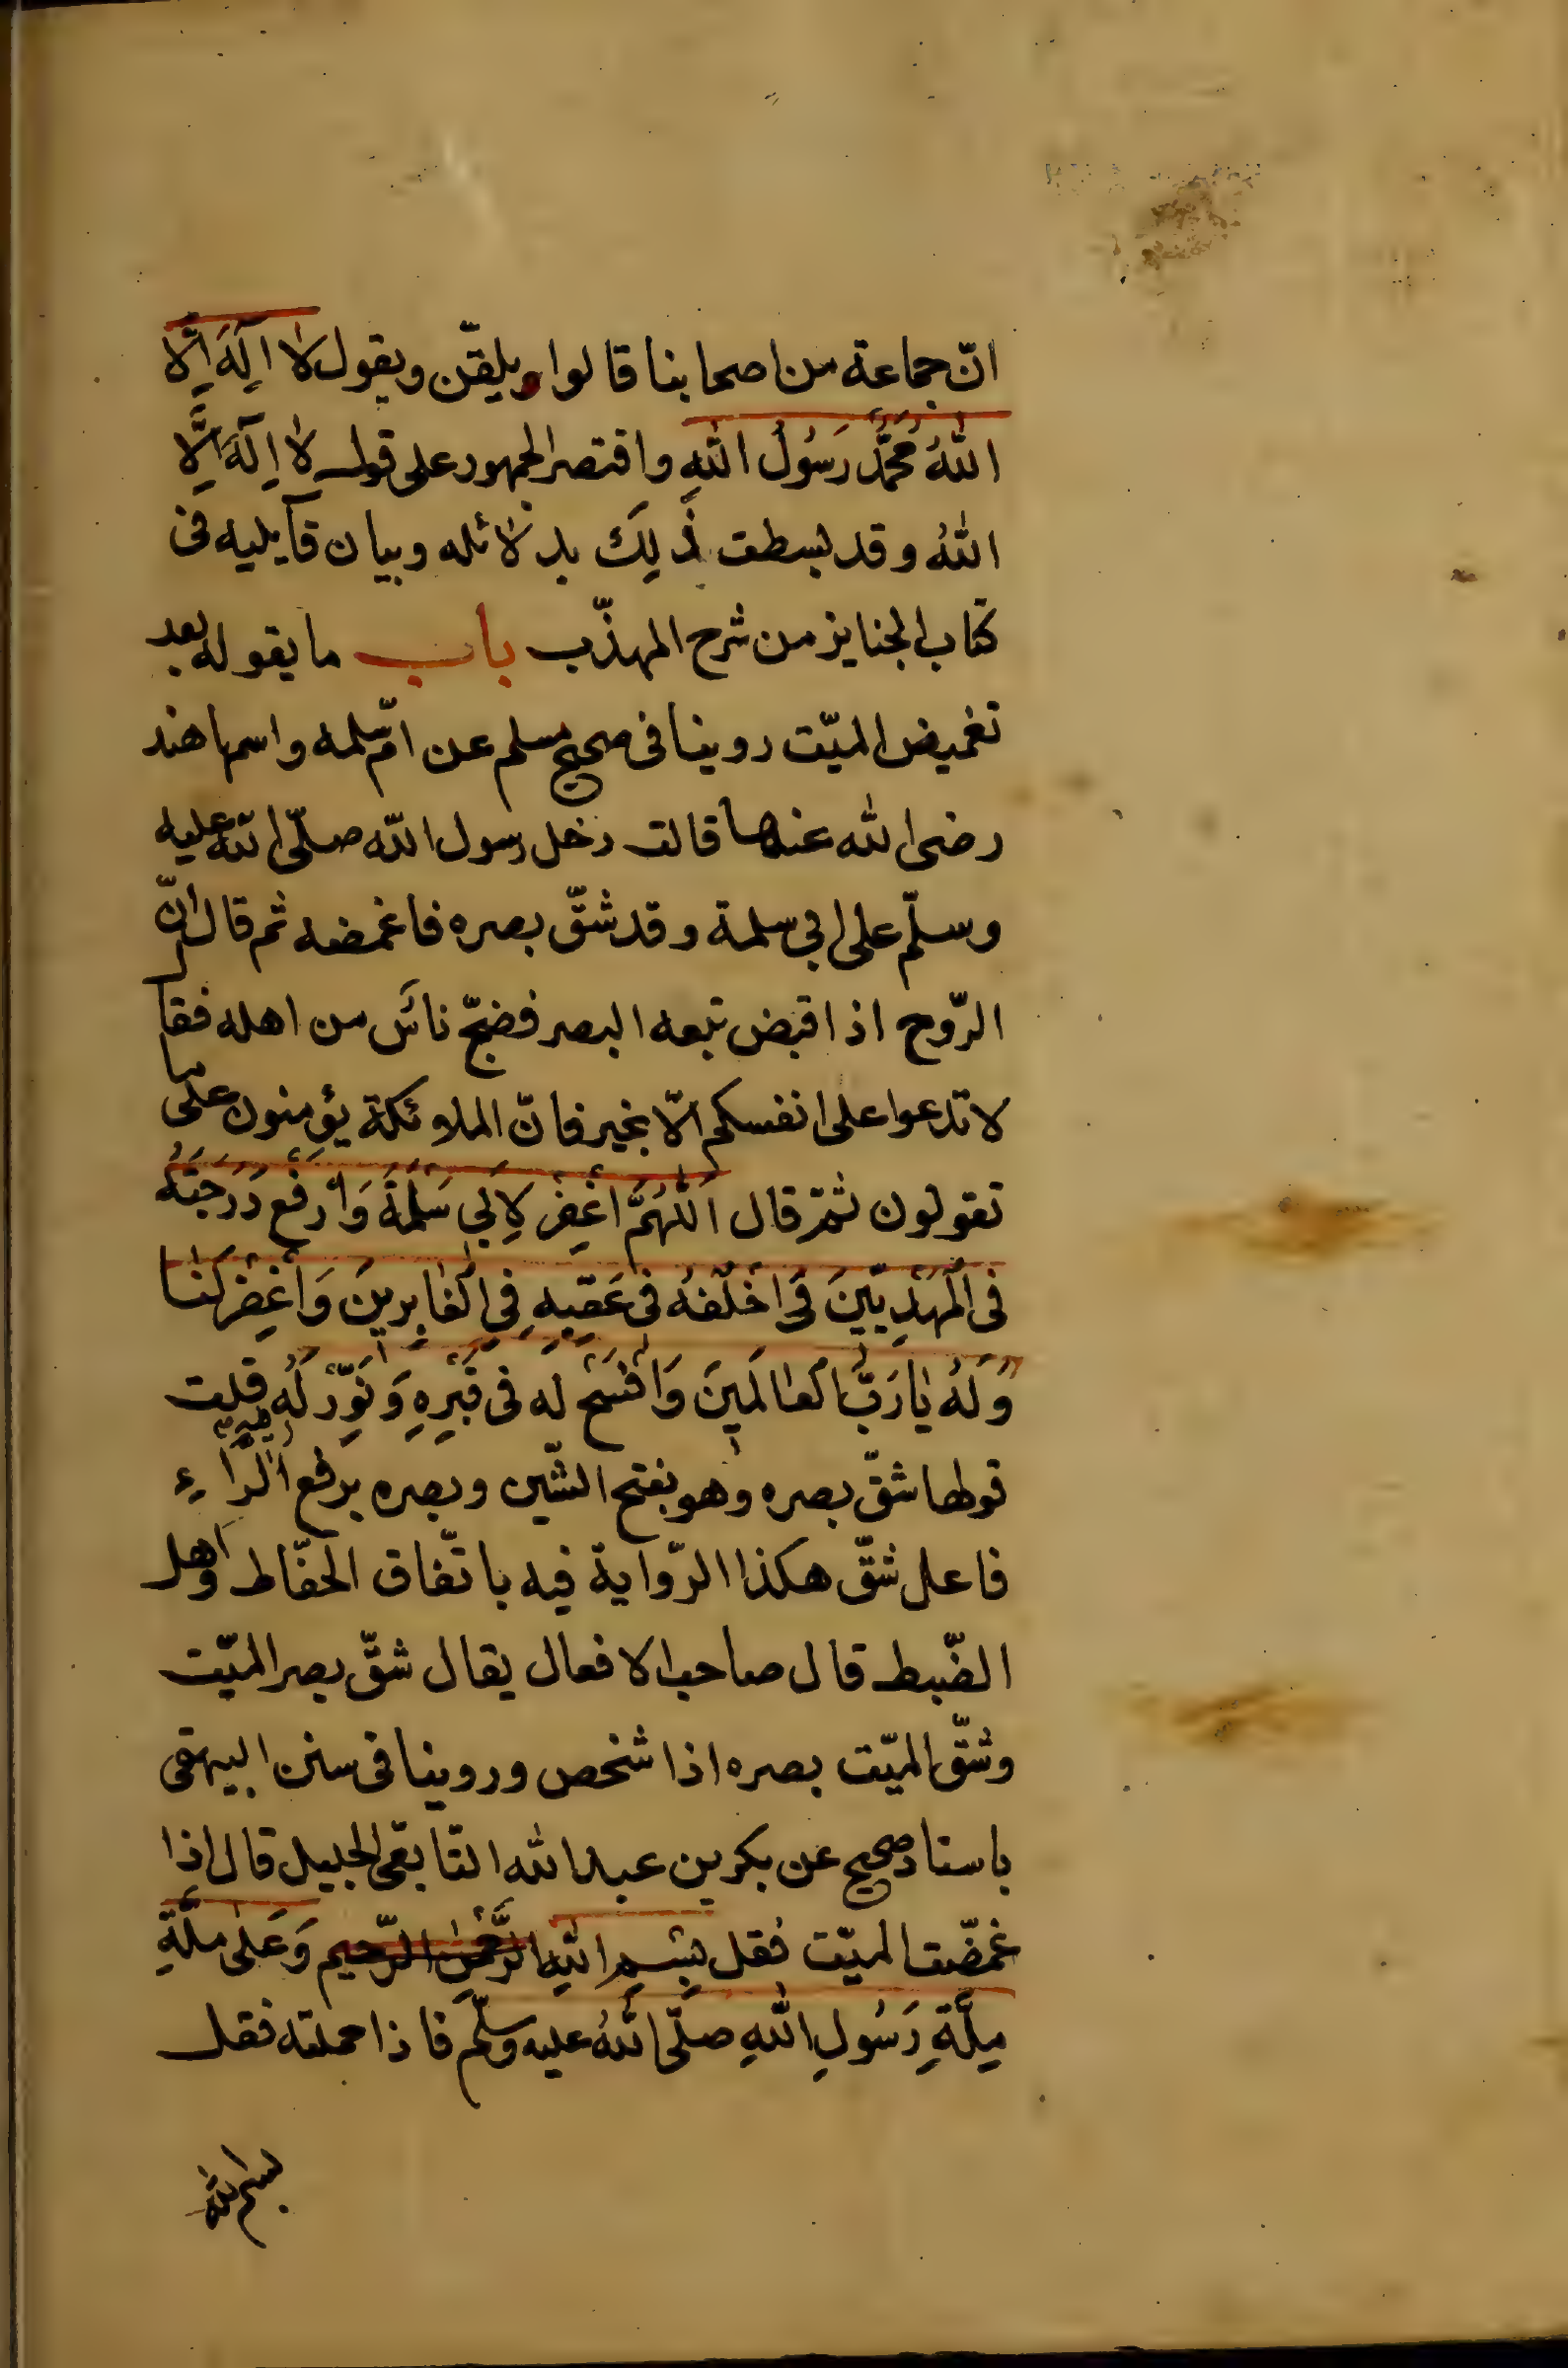 انّ جماعة من اصحابنا قالوا ويلقّن ويقول لا اِلَهَ اِلَّا
اللهُ مُحَمَّدٌ رَسُولُ اللهِ واقتصر الجمهور على قول لا اِلَهَ اِلَّا
اللهُ وقد بسطت ذٰلِكَ بدلائله وبيان قآيليه فى
كتاب الجنايز من شرح المهذّب باب ما يقوله بعد
تغميض الميّت روينا فى صحيح مسلم عن امّ سلمه واسمها هند
رضى الله عنها قالت دخل رسول الله صلّى الله عليه
وسلّم على ابي سلمة وقد شقّ بصره فاغمضه ثم قال انّ
الرّوح اذا قبض تبعه البصر فضجّ ناس من اهله فقا
لا تدعوا على انفسكم الّا بخير فانّ الملائكة يؤمنون على ما
تقولون ثمّ قال اَللّٰهُمَّ اغْفِرْ لِاَبِي سَلَمَةَ وَارْفَعْ دَرَجَتَهُ
فِى الْمَهْدِيّينَ وَاخْلُفْهُ فى عَقِبِهِ فِى الْغَابِرينَ وَاغْفِرْ لَنَا
وَلَهُ يَا رَبَّ الْعَالَمِينَ وَافْسَحْ له فى قَبْرِهِ وَنَوِّرْ لَه فيه قلت
قولها شقّ بصره وهو بفتح الشّين وبصره برفع الرَّاءِ
فاعل شقّ هكذا الرّواية فيه باتّفاق الحفّاظ واهل
الضّبط قال صاحب الافعال يقال شقّ بصر الميّت
وشقّ الميّت بصره اذا شخص وروينا فى سنن البيهقى
باسناد صحيح عن بكر بن عبد الله التابعى الجليل قال اذا
غمّضت الميّت فقل بِسْمِ اللهِ الرَّحْمٰنِ الرّحيم وَعَلٰى مِلَّةِ
مِلَّةِ رَسُولِ اللهِ صلّى اللهُ عليه وسلّم فاذا حملته فقل
بسم الله